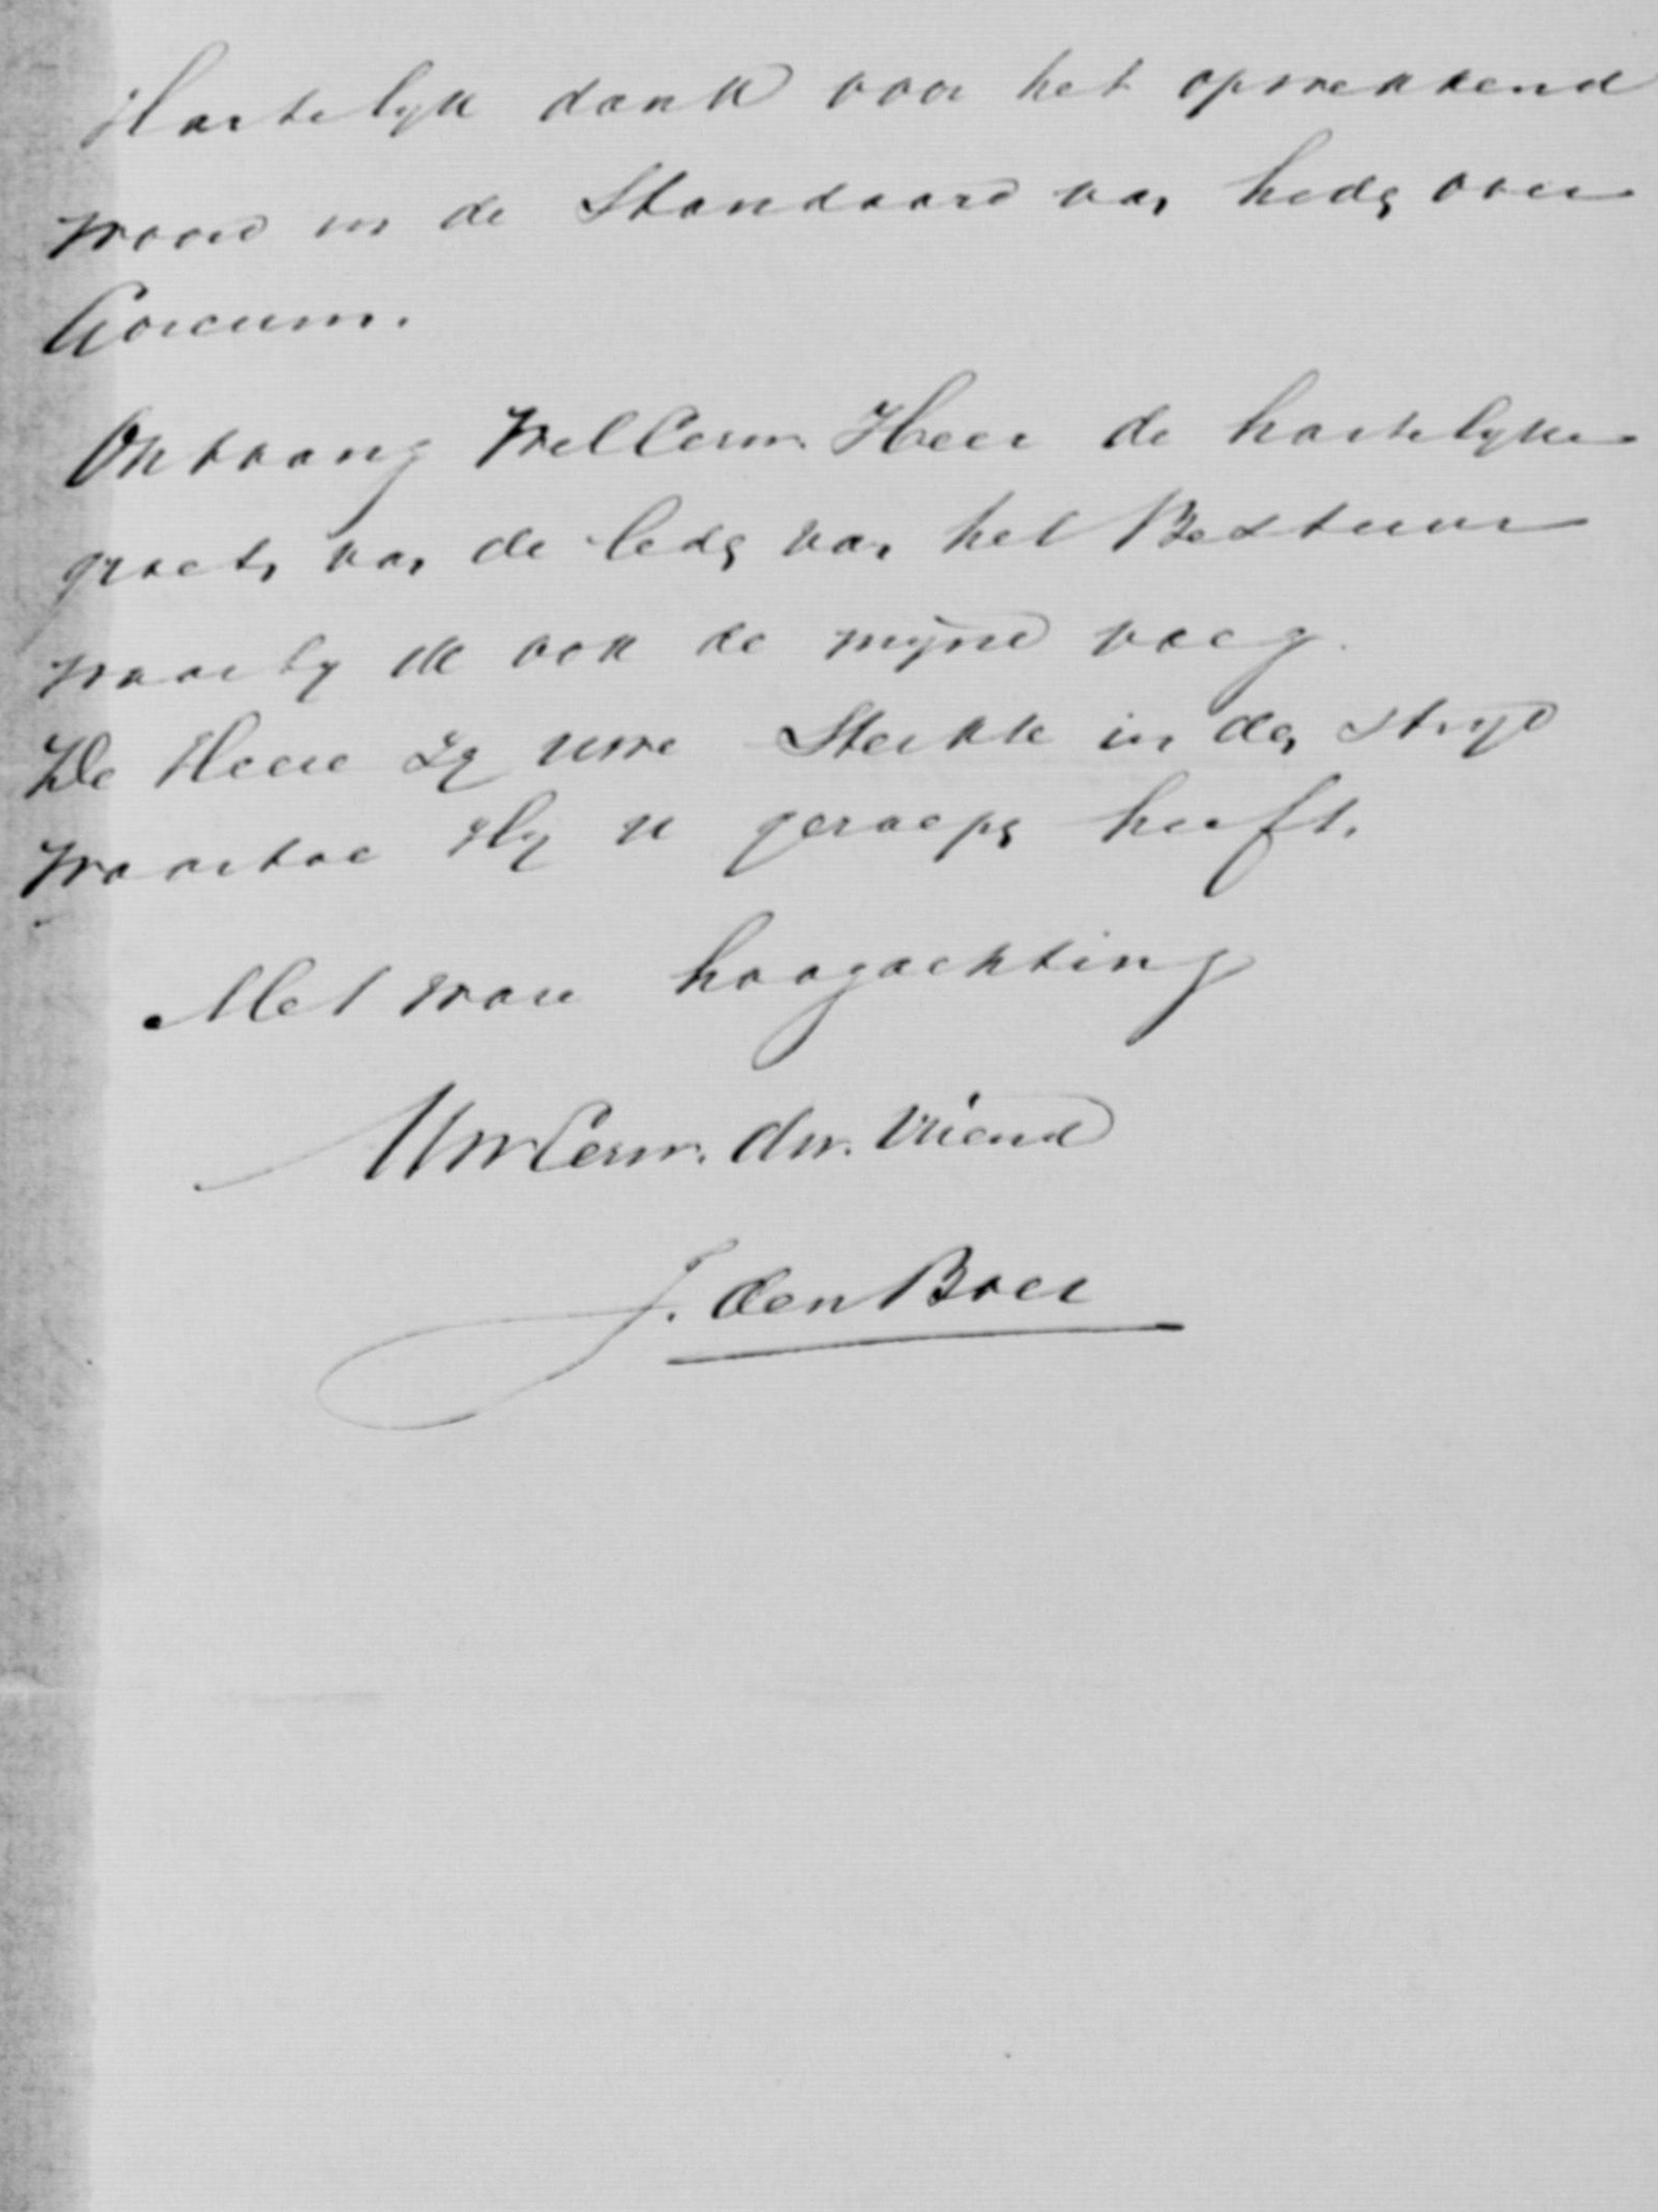 Hartelyk dank voor het opwekkend
woord in de Standaard van heden over
Gorcum.
Ontvang WelEerw. Heer de hartelyke
groeten van de leden van het Bestuur
waarby ik ook de mijne voeg.
De Heere zy uwe Sterkte in den stryd
waartoe Hy u geroepen heeft.
Met ware hoogachting
UwEerw. dw. Vriend
J. den Boer